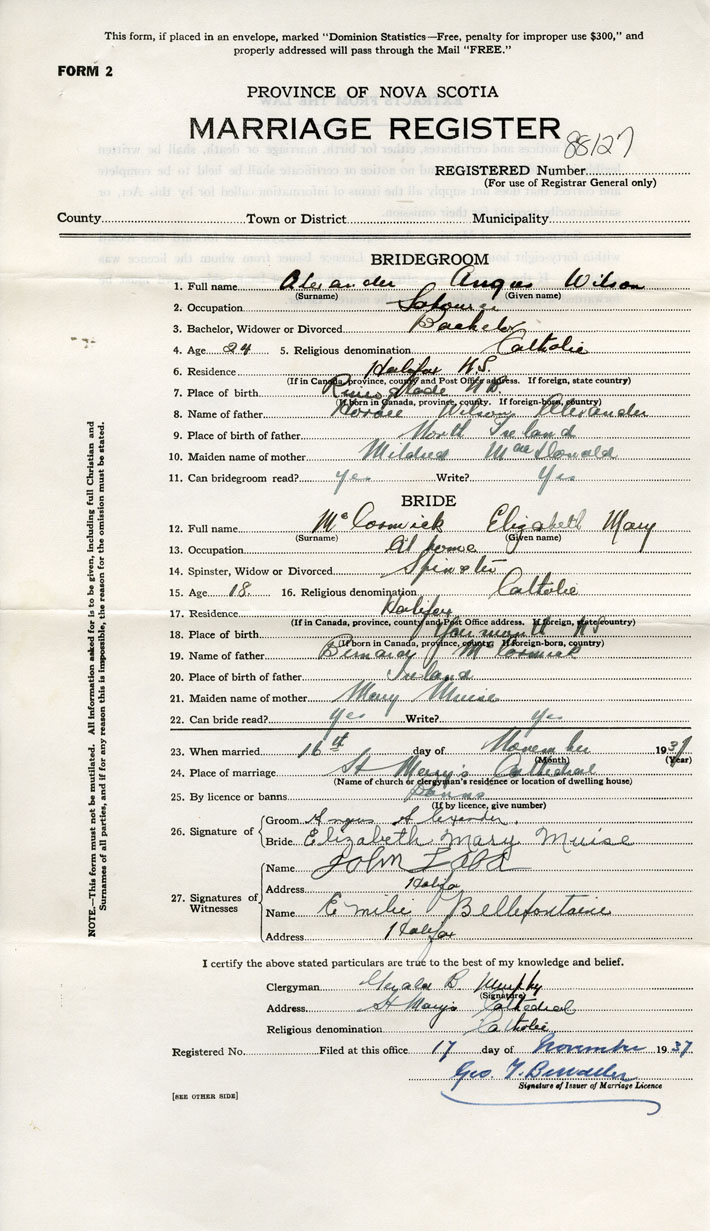 This form, if placed in an envelope, marked "Dominion Statistics—Free, penalty for improper use $300," and
properly addressed will pass through the Mail "FREE."
FORM 2
PROVINCE OF NOVA SCOTIA
MARRIAGE REGISTER
88127
REGISTERED Number
(For use of Registrar General only)
County Town or District Municipality
BRIDEGROOM
1. Full name Alexander Angus Wilson
(Surname) (Given name)
2. Occupation Labourer
3. Bachelor, Widower or Divorced Bachelor
4. Age 24 5. Religious denomination Catholic
6. Residence Halifax N.S.
(If in Canada, province, county and Post Office address. If foreign, state country)
7. Place of birth
(If born in Canada, province, county. If foreign-born, country)
8. Name of father Horace Wilson Alexander
9. Place of birth of father North Ireland
10. Maiden name of mother Mildred MacDonald
11. Can bridegroom read? yes Write? Yes
BRIDE
12. Full name McCormick Elizabeth Mary
(Surname) (Given name)
13. Occupation At home
14. Spinster, Widow or Divorced Spinster
15. Age 18 16. Religious denomination Catholic
17. Residence Halifax
(If in Canada, province, county and Post Office address. If foreign, state country)
18. Place of birth Yarmouth NS
(If born in Canada, province, county. If foreign-born, country)
19. Name of father McCormick
20. Place of birth of father Ireland
21. Maiden name of mother Mary Muise
22. Can bride read? yes Write? yes
23. When married 16th day of November 1937
(Month) (Year)
24. Place of marriage St Mary's Cathedral
(Name of church or clergyman's residence or location of dwelling house)
25. By licence or banns Banns
(If by licence, give number)
26. Signature of
Groom Angus Alexander.
Bride Elizabeth Mary Muise
27. Signatures of Witnesses
Name John
Address Halifax
Name Emilie Bellefontaine
Address Halifax
I certify the above stated particulars are true to the best of my knowledge and belief.
Clergyman Gerald B. Murphy
(Signature)
Address St Mary's Cathedral
Religious denomination Catholic
Registered No. Filed at this office 17 day of November 1937
Geo. T.
Signature of Issuer of Marriage Licence
[SEE OTHER SIDE]
NOTE.—This form must not be mutilated. All information asked for is to be given, including full Christian and
Surnames of all parties, and if for any reason this is impossible, the reason for the omission must be stated.